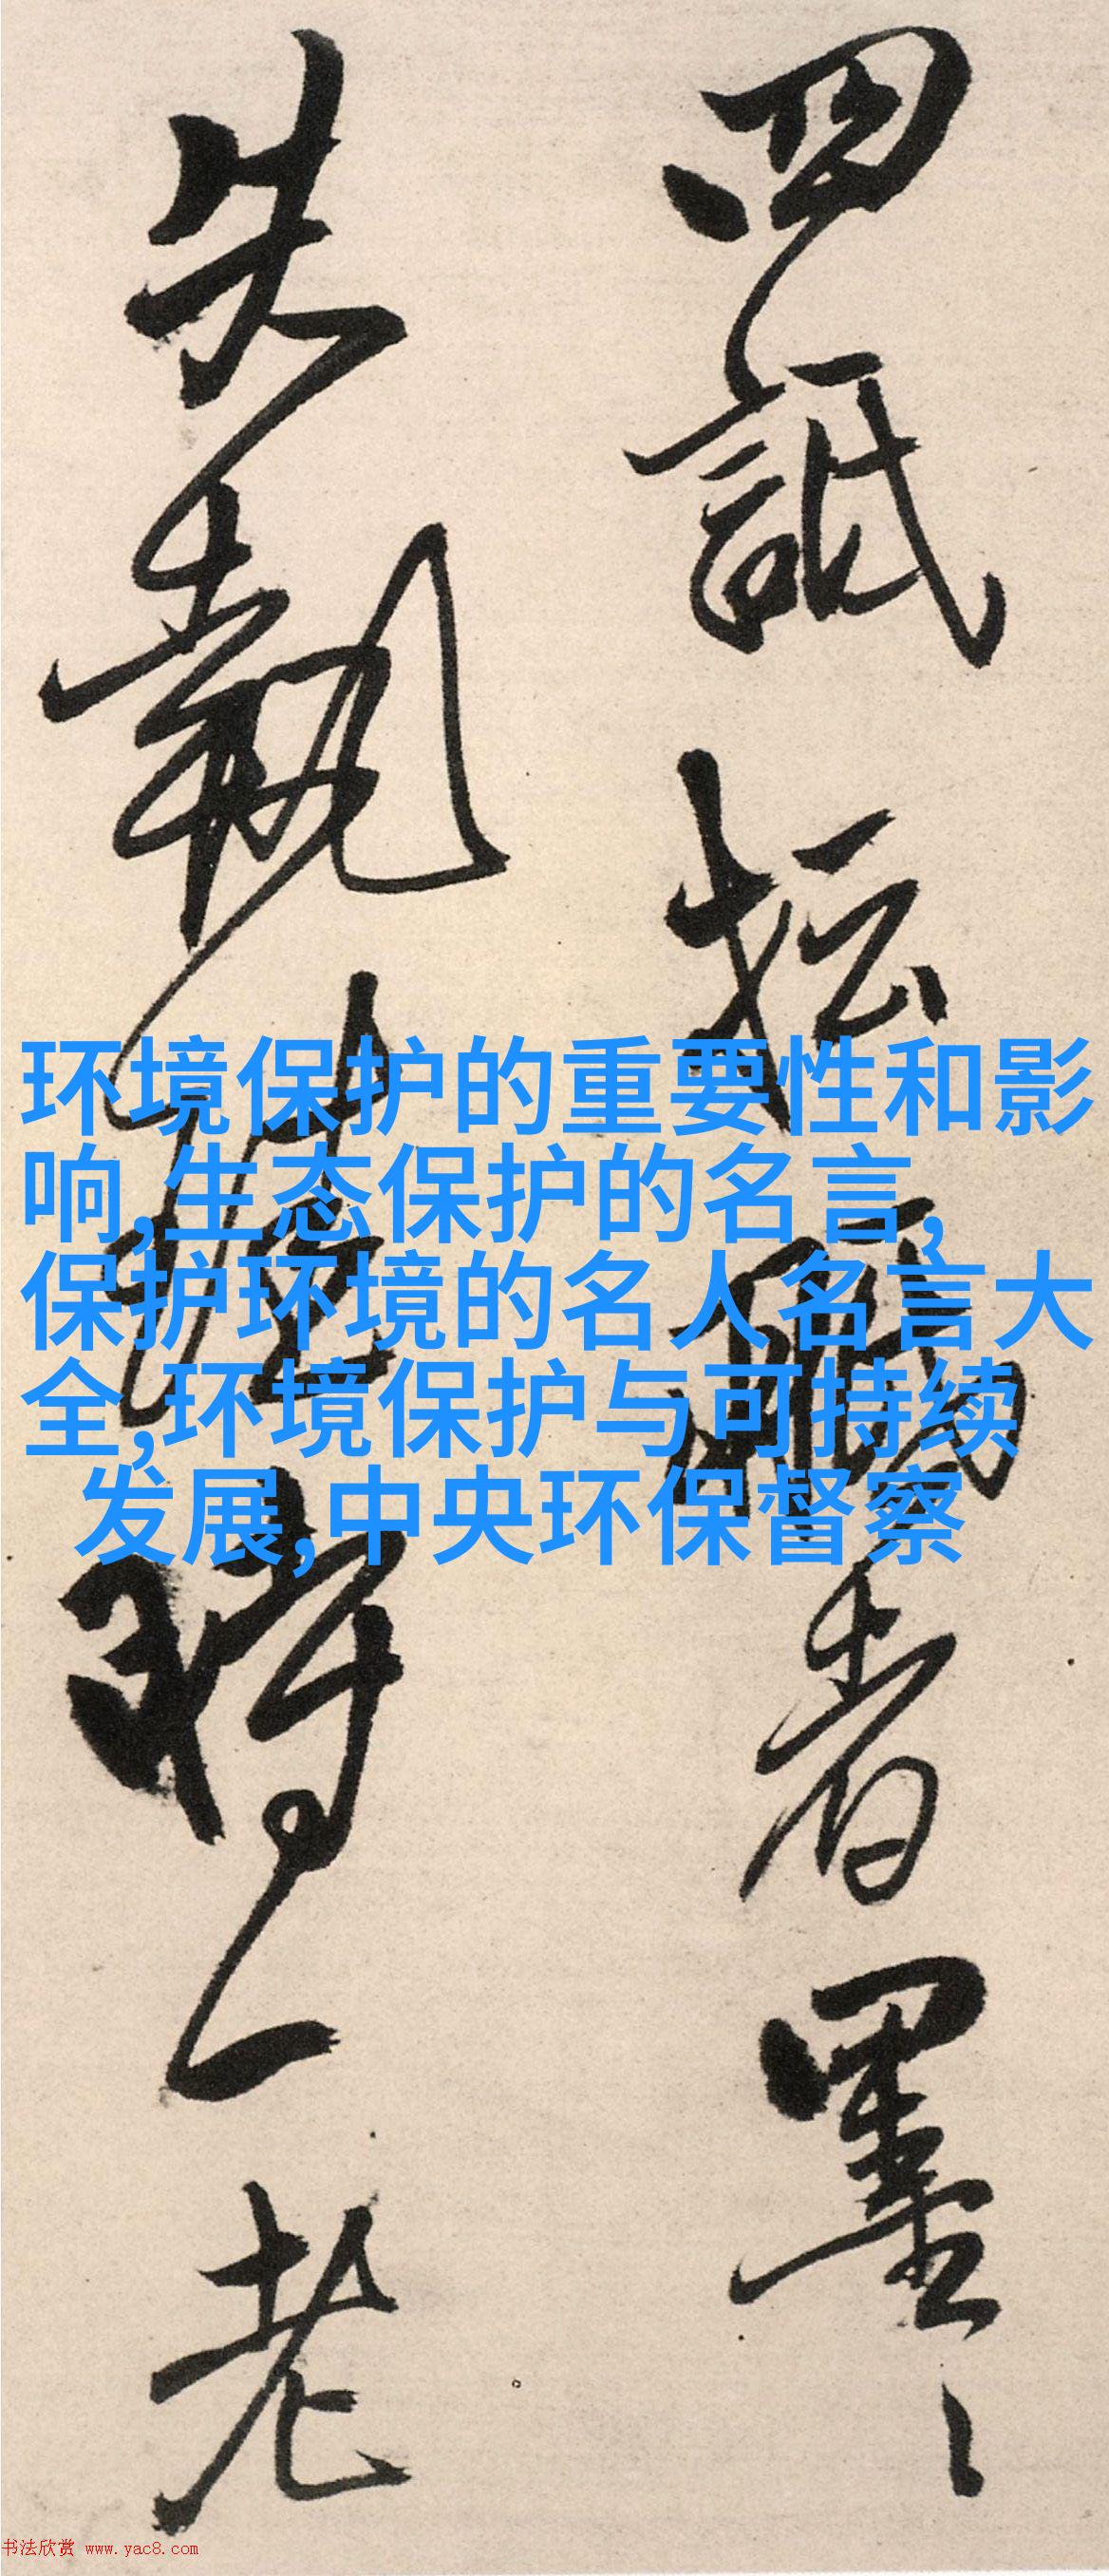 四 者 墨
失 執 時 一 老
环境保护的重要性和影
响,生态保护的名言,
保护环境的名人名言大
全,环境保护与可持续
发展,中央环保督察
书法欣赏 www.yac8.com